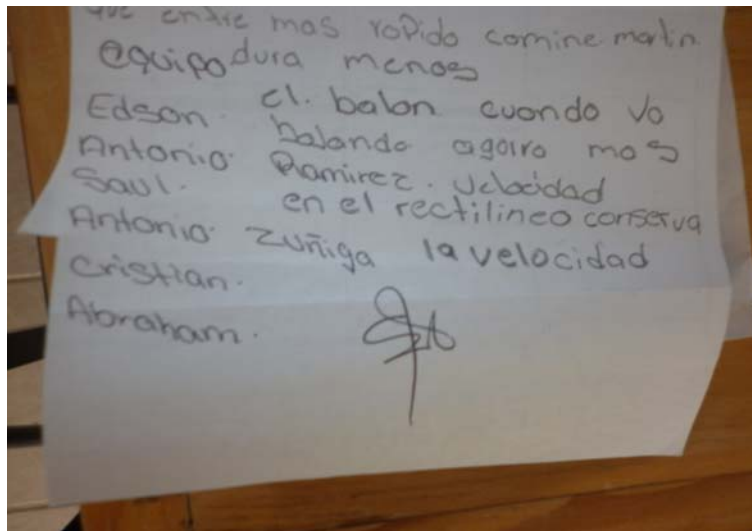 que entre mas rapido camine martin
equipo dura menos
Edson. el. balon cuando va
Antonio. balando agarro mas
Saul. Ramirez. velocidad
en el rectilineo conserva
Antonio Zuñiga la velocidad
cristian.
Abraham.